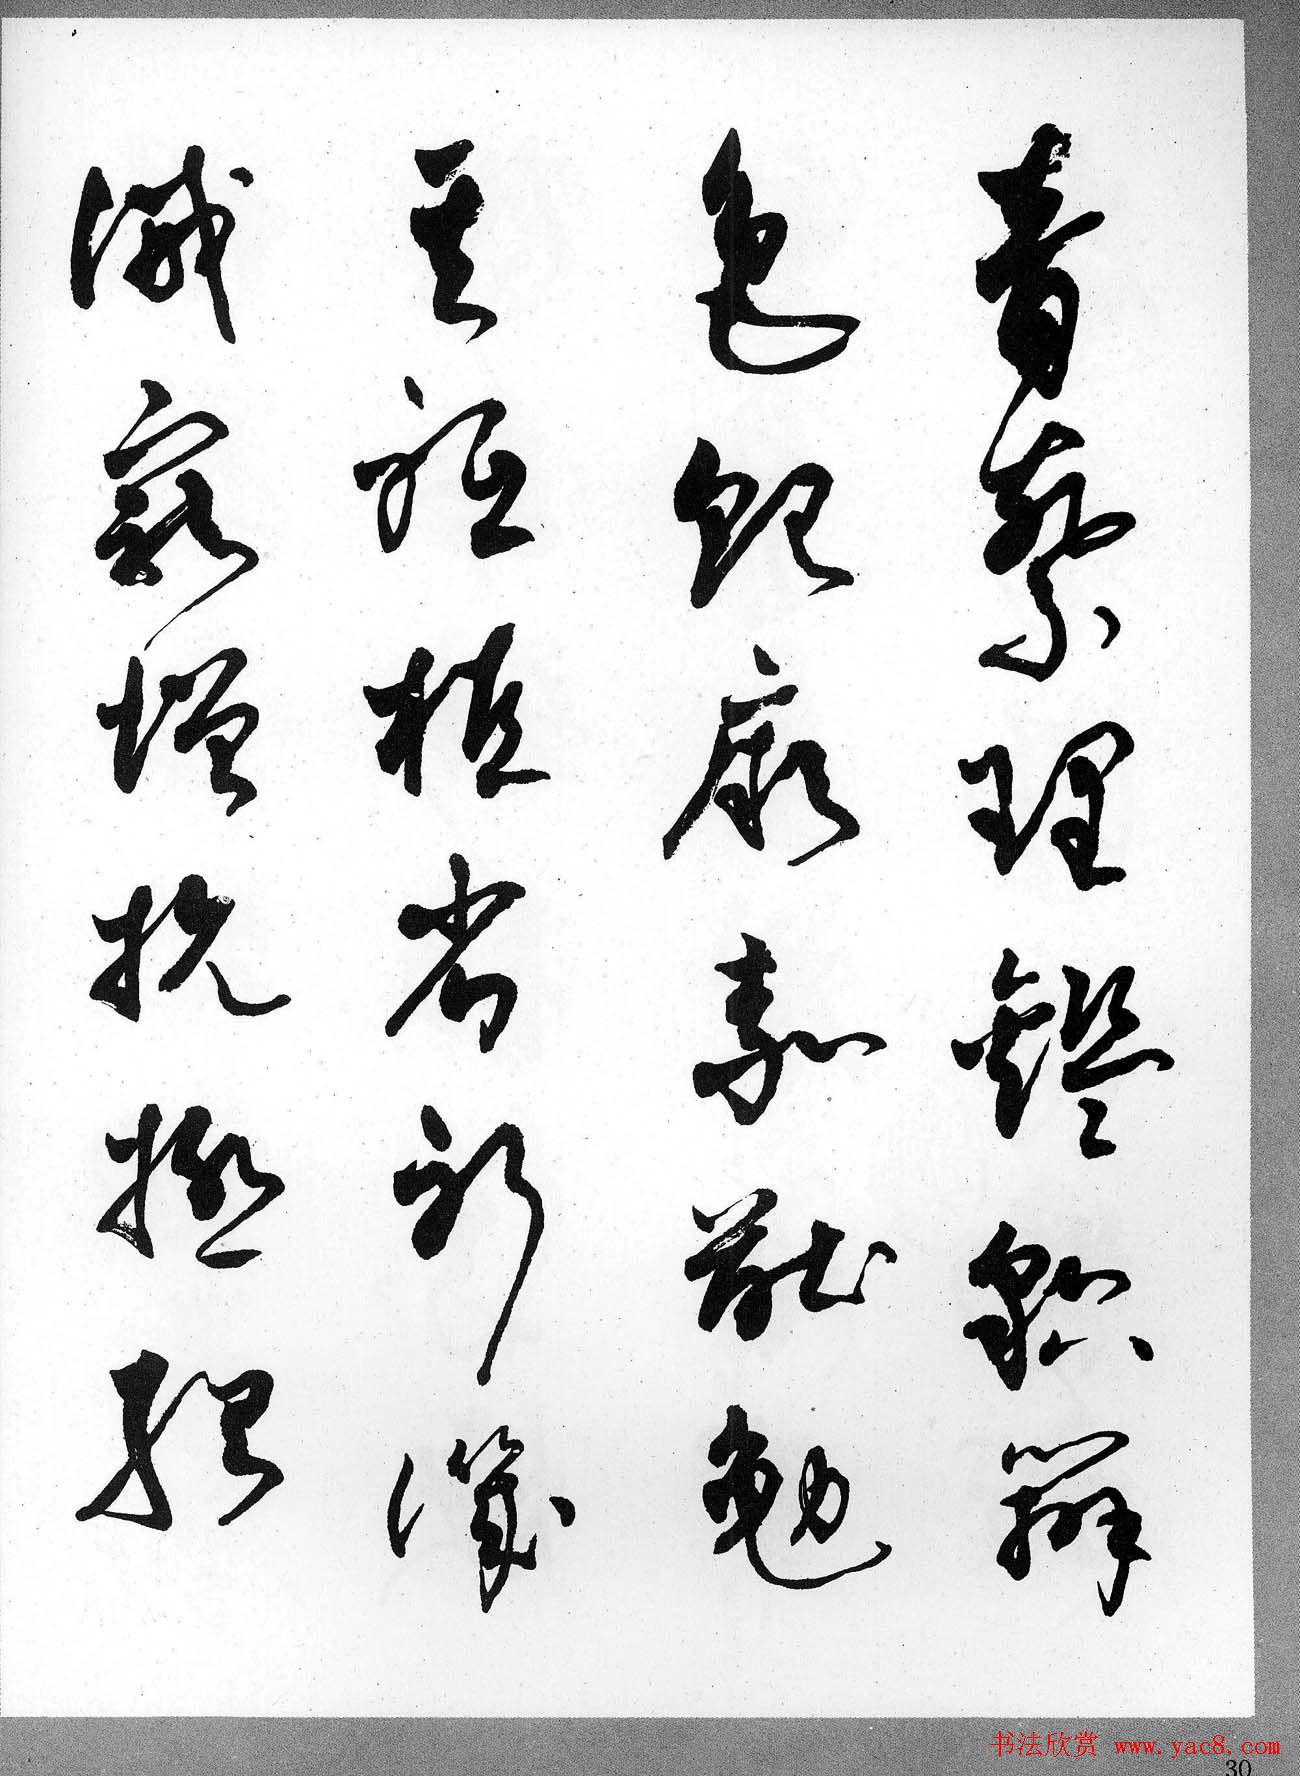 音察理鑑貌辨
色貽厥嘉猷勉
其祗植省躬譏
誡寵增抗極殆
书法欣赏 www.yac8.com
30